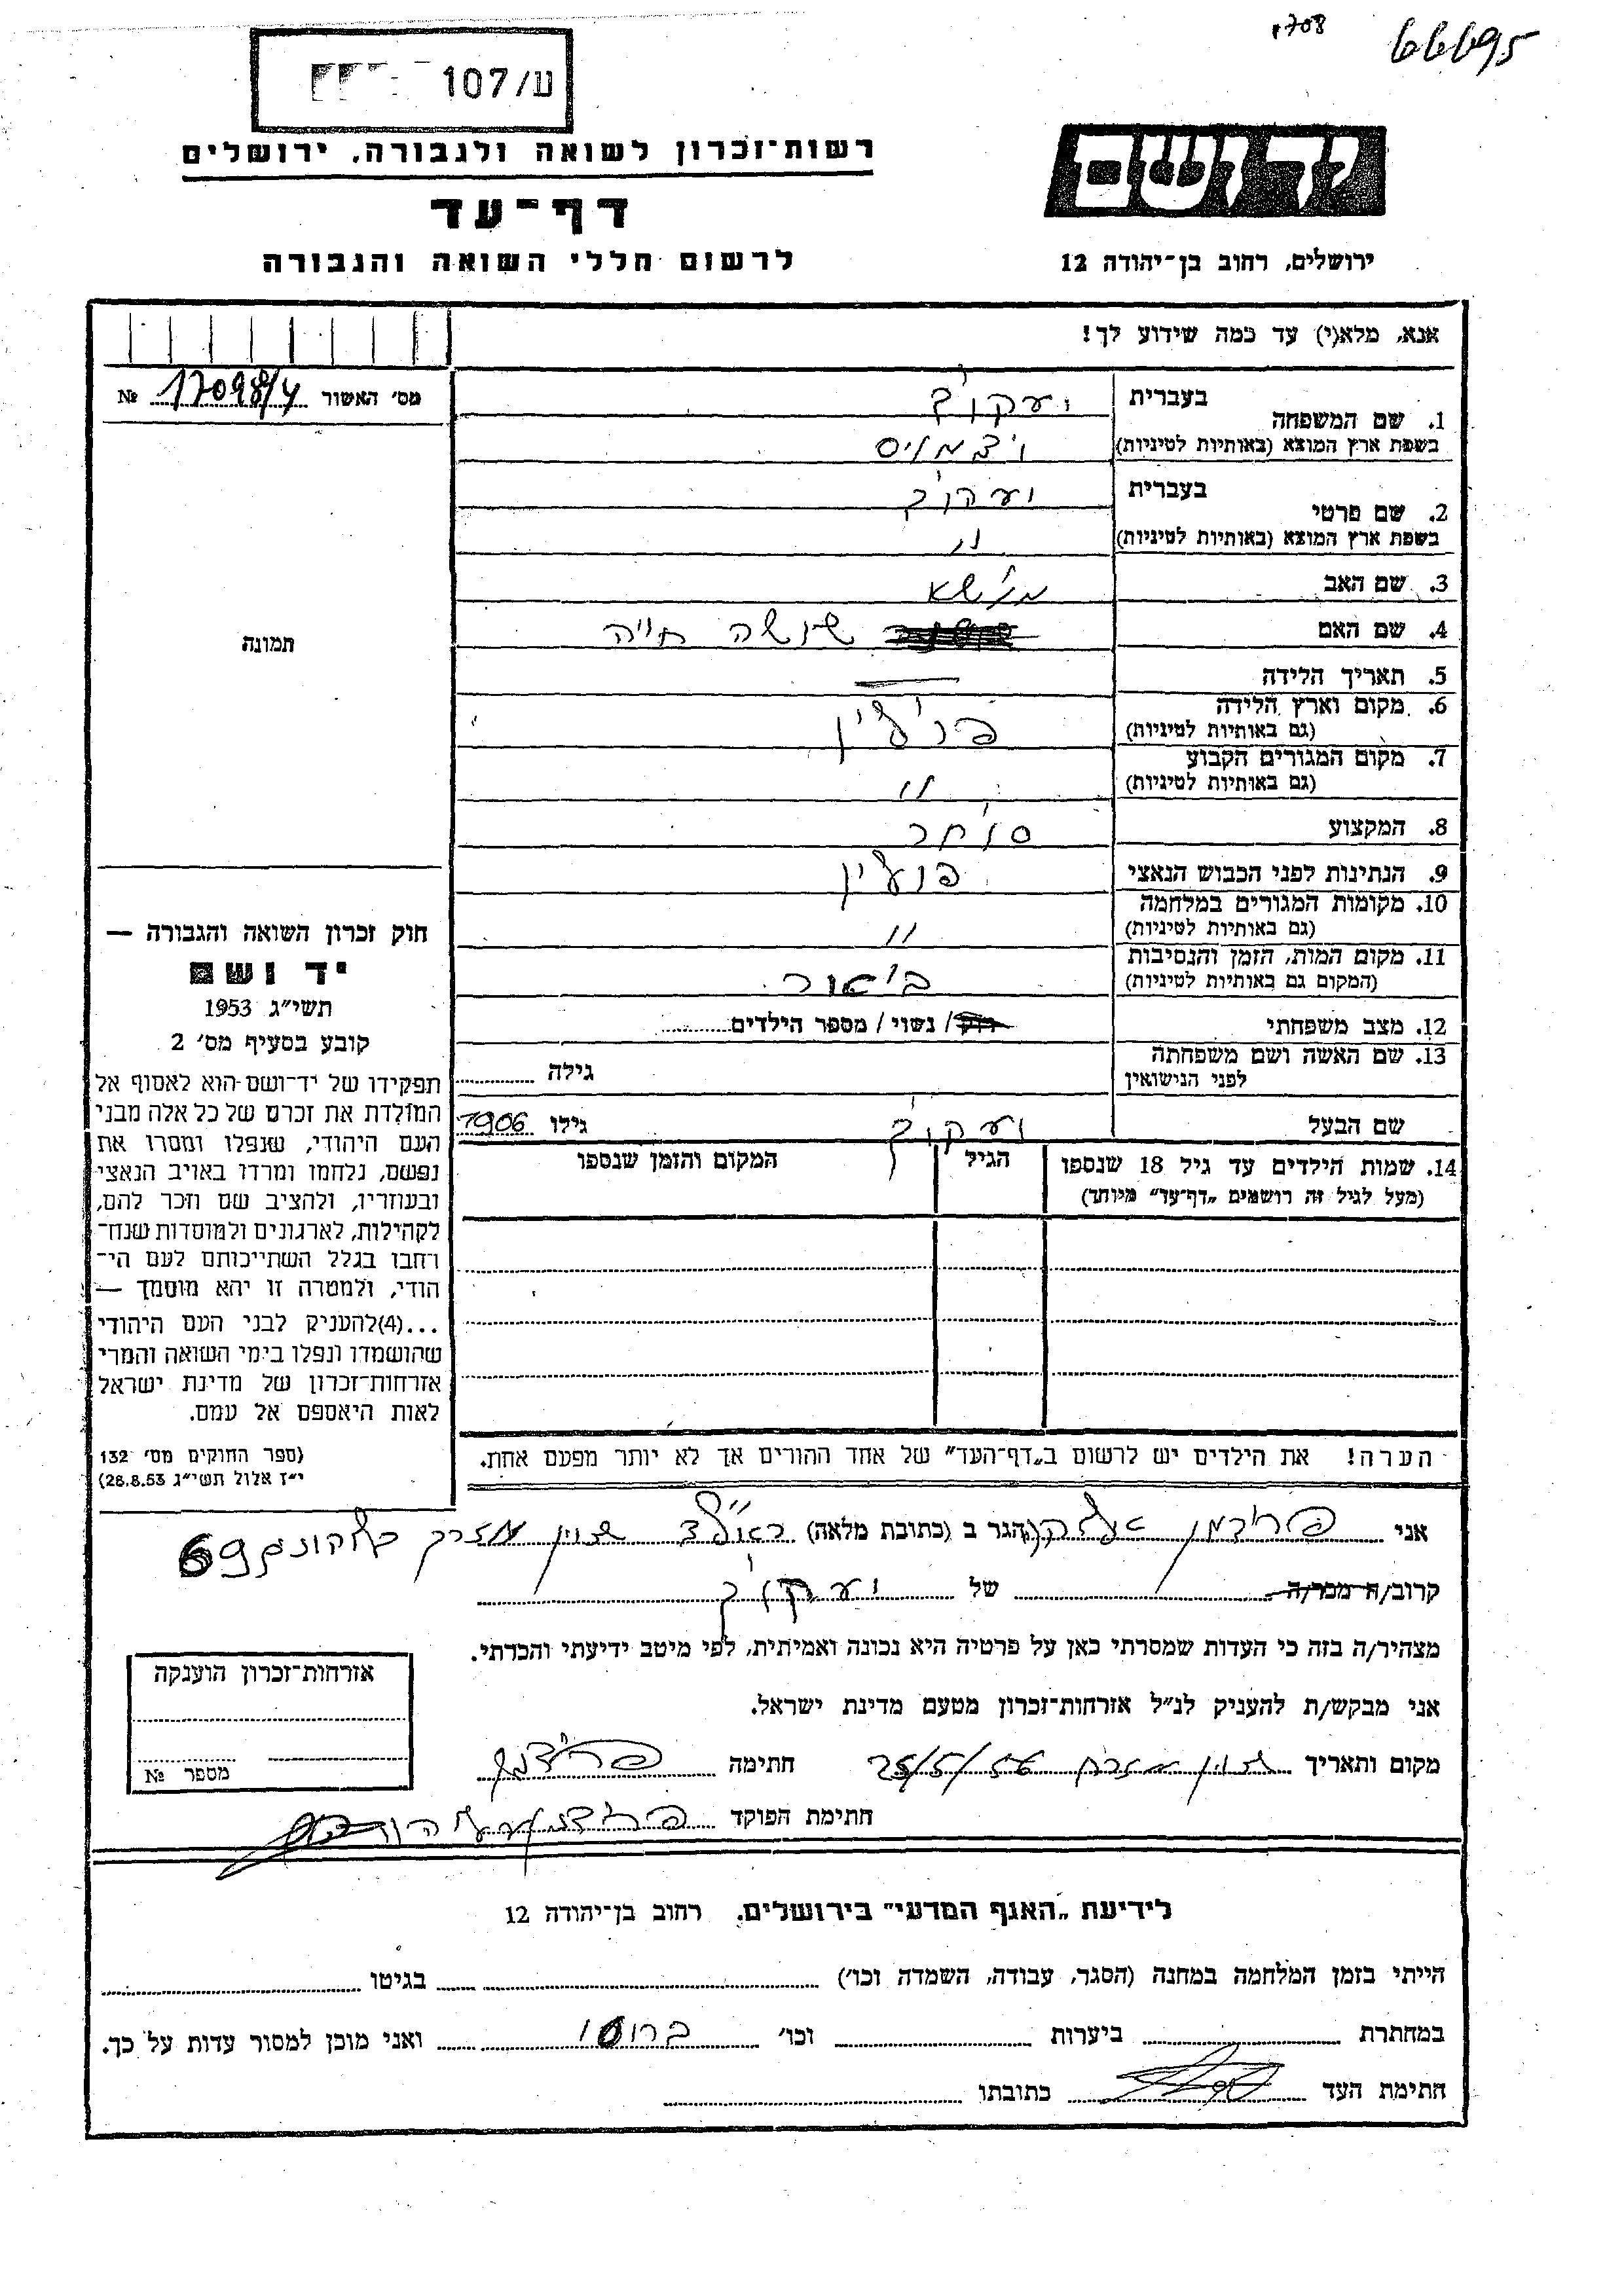 66695
ע/107
רשות־זכרון לשואה ולגבורה, ירושלים
דף־עד
לרשום חללי השואה והגבורה
ידושם
ירושלים, רחוב בן־יהודה 12
אנא, מלא(י) עד כמה שידוע לך!
מס׳ האשור 17098/4 №
תמונה
חוק זכרון השואה והגבורה —
יד ושם
תשי״ג 1953
קובע בסעיף מס׳ 2
תפקידו של יד־ושם הוא לאסוף אל
המולדת את זכרם של כל אלה מבני
העם היהודי, שנפלו ומסרו את
נפשם, נלחמו ומרדו באויב הנאצי
ובעוזריו, ולהציב שם וזכר להם,
לקהילות, לארגונים ולמוסדות שנח־
רחבו בגלל השתייכותם לעם הי־
הודי, ולמטרה זו יהא מוסמך —
...(4)להעניק לבני העם היהודי
שהושמדו ונפלו בימי השואה והמרי
אזרחות־זכרון של מדינת ישראל
לאות היאספם אל עמם.
(ספר החוקים מס׳ 132
י״ז אלול תשי״ג 28.8.53)
1. שם המשפחה בעברית יעקוב
בשפת ארץ המוצא (באותיות לטיניות)
2. שם פרטי בעברית יעקוב
בשפת ארץ המוצא (באותיות לטיניות) ״
3. שם האב
4. שם האם שושה חייה
5. תאריך הלידה —
6. מקום וארץ הלידה
(גם באותיות לטיניות)
7. מקום המגורים הקבוע
(גם באותיות לטיניות) ״
8. המקצוע סוחר
9. הנתינות לפני הכבוש הנאצי פולין
10. מקומות המגורים במלחמה
(גם באותיות לטיניות) ״
11. מקום המות, הזמן והנסיבות
(המקום גם באותיות לטיניות)
12. מצב משפחתי רוק/ נשוי / מספר הילדים
13. שם האשה ושם משפחתה
לפני הנישואין גילה
שם הבעל יעקוב גילו 1906
14. שמות הילדים עד גיל 18 שנספו הגיל המקום והזמן שנספו
(מעל לגיל זה רושמים „דף־עד״ מיוחד)
הערה! את הילדים יש לרשום ב„דף־העד״ של אחד ההורים אך לא יותר מפעם אחת.
אני פרידמן הגר ב (כתובת מלאה) 69
קרוב/ה מכר/ה של יעקוב
מצהיר/ה בזה כי העדות שמסרתי כאן על פרטיה היא נכונה ואמיתית, לפי מיטב ידיעתי והכרתי.
אני מבקש/ת להעניק לנ״ל אזרחות־זכרון מטעם מדינת ישראל.
מקום ותאריך 25/5/56 חתימה פרידמן
חתימת הפוקד
אזרחות־זכרון הוענקה
מספר №
לידיעת „האגף המדעי״ בירושלים, רחוב בן־יהודה 12
הייתי בזמן המלחמה במחנה (הסגר, עבודה, השמדה וכו׳) בגיטו
במחתרת ביערות וכו׳ ואני מוכן למסור עדות על כך.
חתימת העד כתובתו